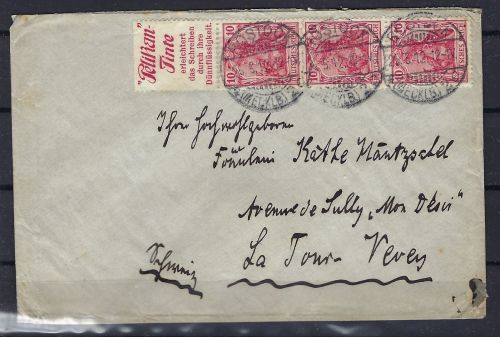 "Pelikan"
Tinte
erleichtert
das Schreiben
durch ihre
Dünnflüssigkeit.
10 10
10 10
10 10
ROSTOCK
(MECKLB)
Ihrer Hochwohlgeboren
Fräulein Käthe Häntzschel
Avenue de Sully „Mon Désir"
La Tour-Vevey
Schweiz